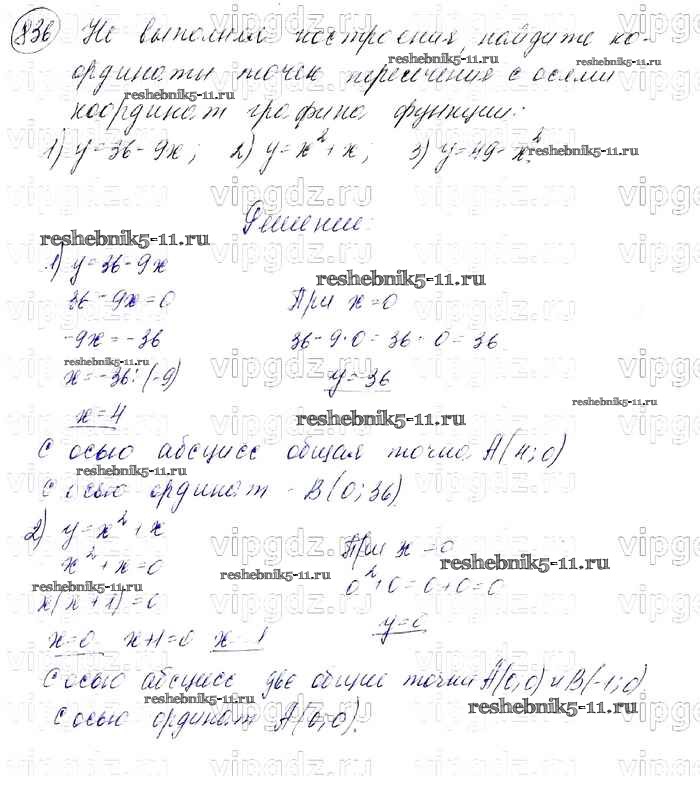 836 Не выполняя построения, найдите ко-
ординаты точек пересечения с осями
координат графика функции:
1) y=36-9x; 2) y=x²+x; 3) y=49-x².
Решение:
1) y=36-9x
36-9x=0 При x=0
-9x=-36 36-9·0=36-0=36
x=-36:(-9) y=36
x=4
С осью абсцисс общая точка A(4;0)
С осью ординат - B(0;36)
2) y=x²+x
x²+x=0 При x=0
x(x+1)=0 0²+0=0+0=0
x=0 x+1=0 x=-1 y=0
С осью абсцисс две общие точки A(0;0) и B(-1;0)
С осью ординат A(0;0).
reshebnik5-11.ru
vipgdz.ru